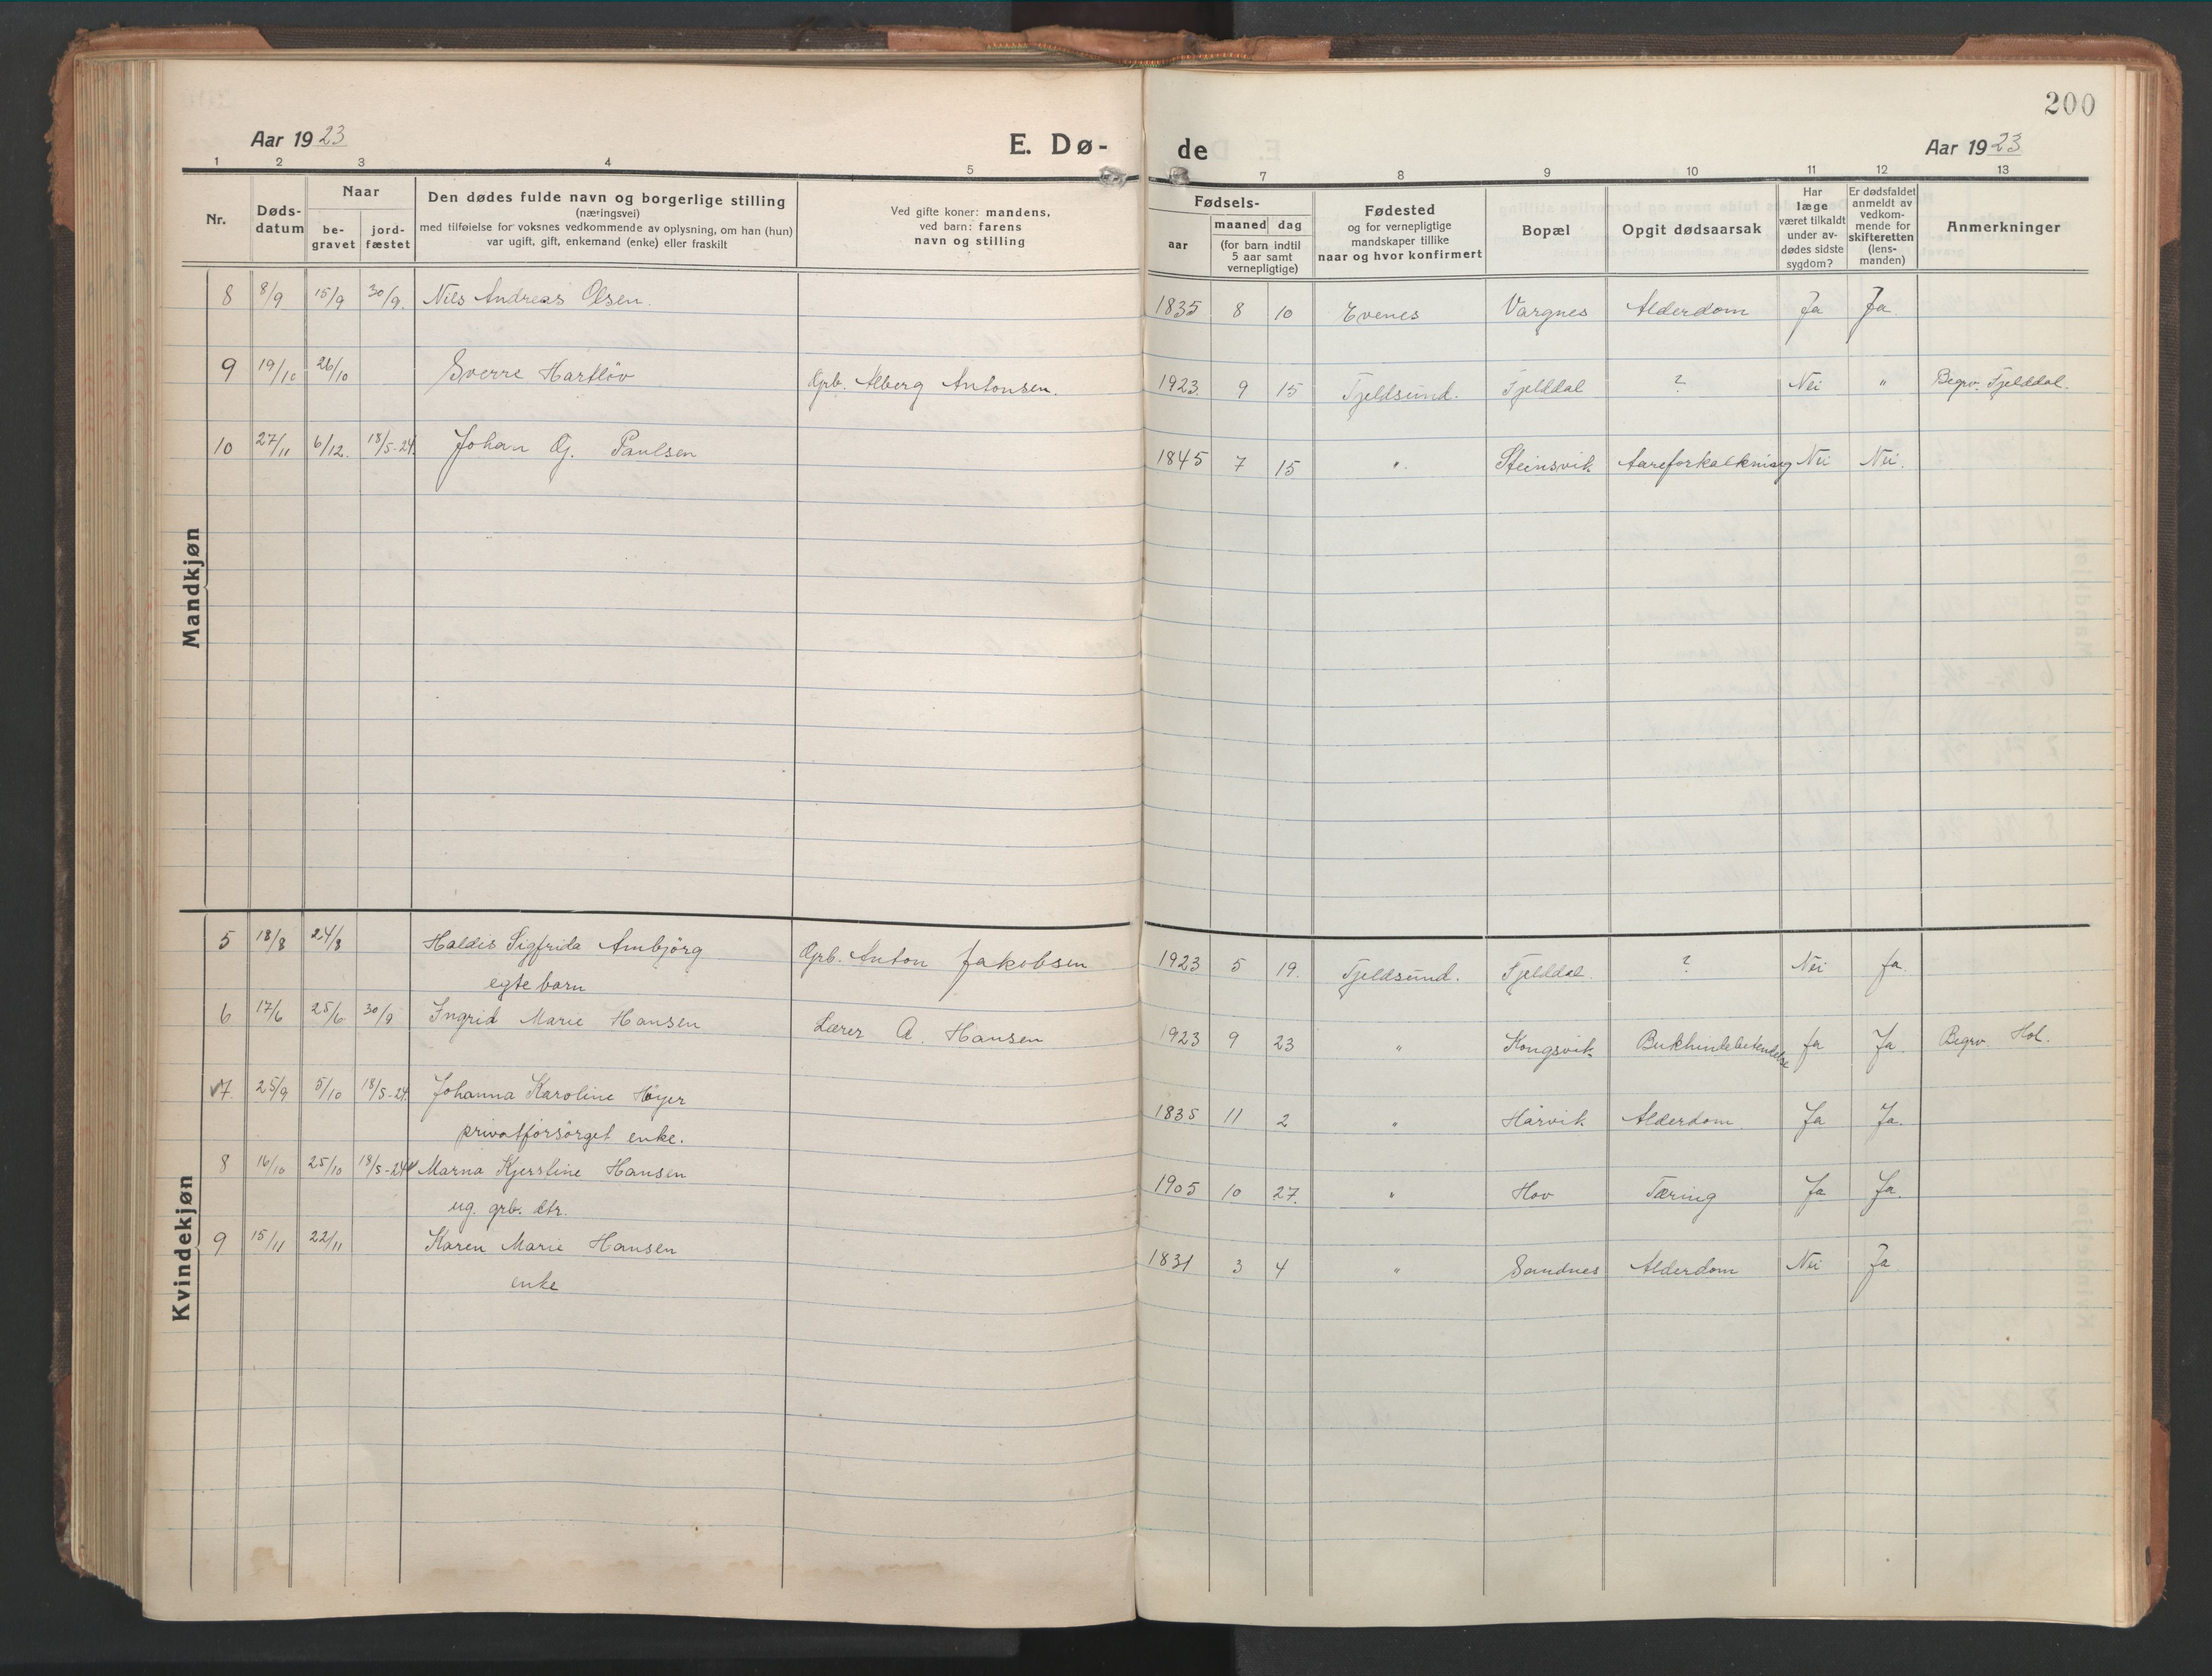 200
Aar 1923 E. Dø- de Aar 1923
1 2 3 4 5 7 8 9 10 11 12 13
Nr. Døds-datum Naar be-gravet jord-fæstet Den dødes fulde navn og borgerlige stilling (næringsvei) med tilføielse for voksnes vedkommende av oplysning, om han (hun) var ugift, gift, enkemand (enke) eller fraskilt Ved gifte koner: mandens, ved barn: farens navn og stilling Fødsels- aar maaned dag (for barn indtil 5 aar samt vernepligtige) Fødested og for vernepligtige mandskaper tillike naar og hvor konfirmert Bopæl Opgit dødsaarsak Har læge været tilkaldt under av-dødes sidste sygdom? Er dødsfaldet anmeldt av vedkom-mende for skifteretten (lens-manden) Anmerkninger
Mandkjøn
8 8/9 15/9 30/9. Nils Andreas Olsen. 1835 8 10 Evenes Vargnes Alderdom Ja Ja
9 19/10 26/10 Sverre Hartløv Grb. Alberg Antonsen. 1923. 9 15 Tjeldsund. Fjelddal ? Nei " Begrv. Fjelddal.
10 27/11 6/12. 18/5-24. Johan Paulsen 1845 7 15 " Steinsvik Aareforkalkning Nei Nei.
Kvindekjøn
5 18/8 24/8 Haldis Sigfrida Ambjörg Grb. Anton Jakobsen 1923 5 19. Tjeldsund. Fjelddal. ? Nei Ja.
egte barn
6 17/6 25/6 30/9 Ingrid Marie Hansen Lærer A. Hansen 1923 9 23 " Kongsvik Bukhindebetendelse Ja Ja. Begrv. Hol.
7. 25/9 5/10 18/5-24. Johanna Karoline Höyer 1835 11 2 " Hårvik Alderdom Ja Ja.
privatforsörget enke.
8 16/10 25/10 18/5-24 Marna Kjerstine Hansen 1905 10 27. " Hov Tæring Ja Ja.
ug. grb. dtr.
9 15/11 22/11 Karen Marie Hansen 1831 3 4 " Sandnes Alderdom Nei Ja
enke